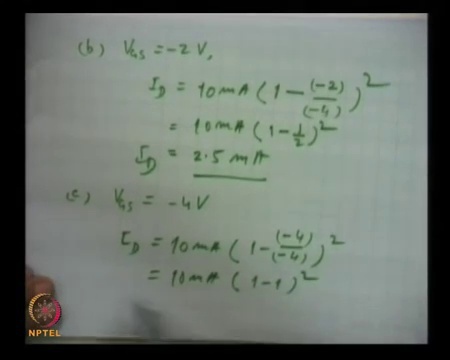 (b) VGS = -2 V,
ID = 10 mA ( 1 - (-2)/(-4) )²
= 10 mA ( 1 - 1/2 )²
ID = 2.5 mA
(c) VGS = -4V
ID = 10 mA ( 1 - (-4)/(-4) )²
= 10 mA ( 1 - 1 )²
NPTEL